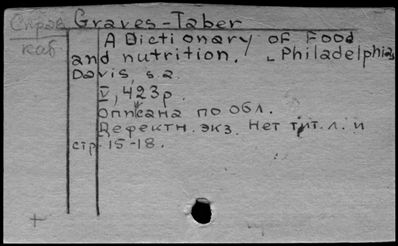 Справ Graves-Taber
каб. A Dictionary of Food
and nutrition. - Philadelphia
Davis, s.a.
V, 423p.
описана по обл.
Дефектн. экз. Нет тит.л. и
стр. 15-18.